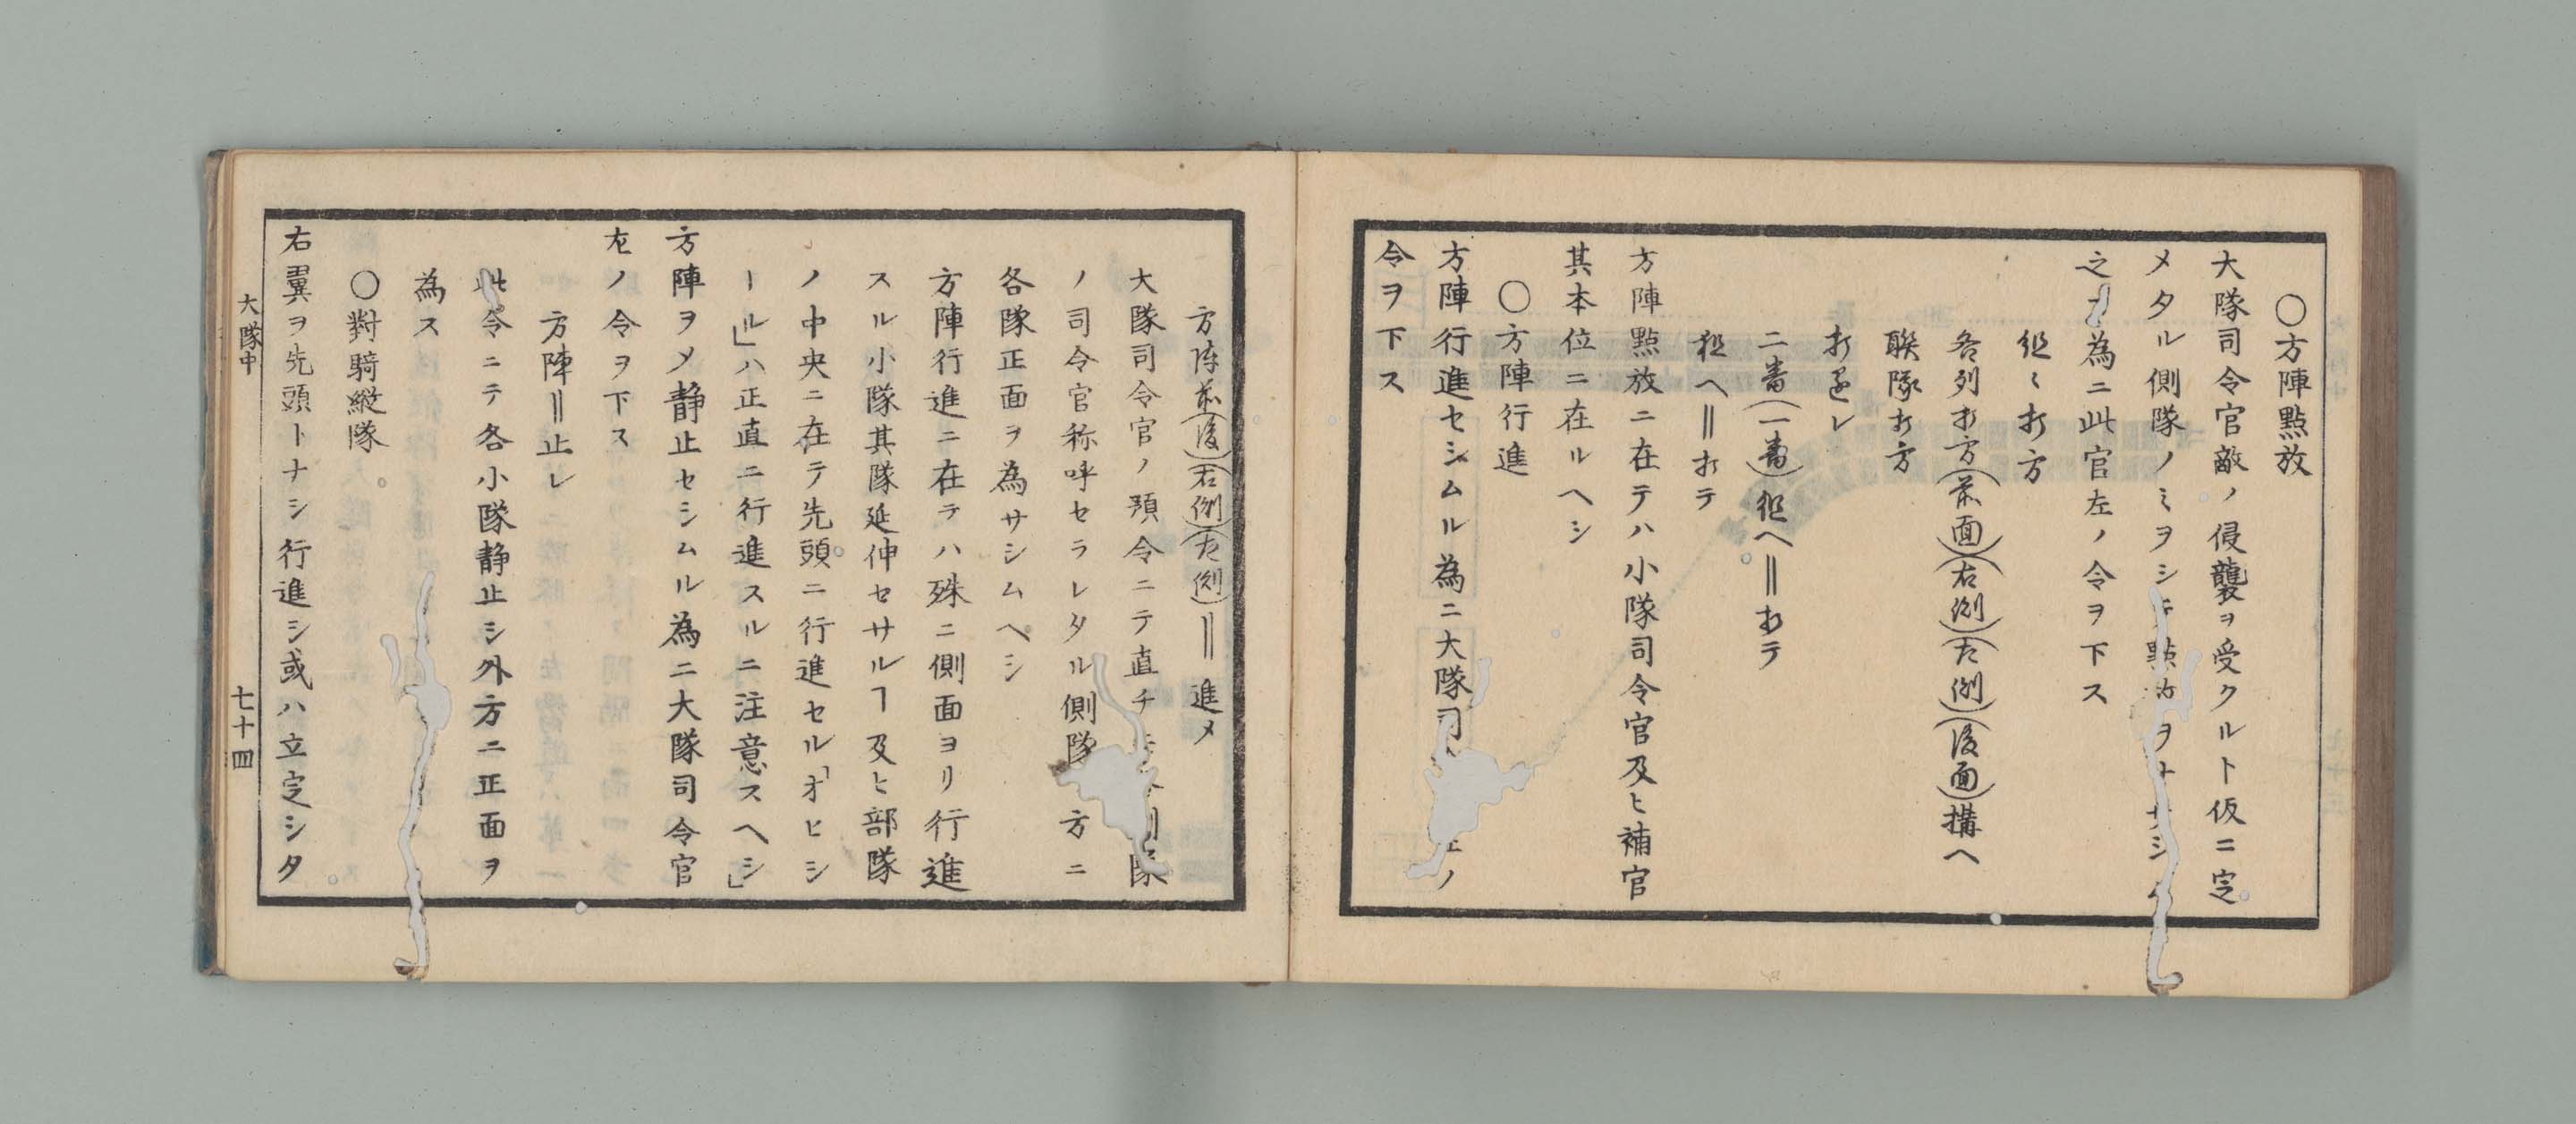 〇方陣點放
大隊司令官敵ノ侵襲ヲ受クルト仮ニ定
メタル側隊ノミヲシテ點放ヲナサシ
之 為ニ此官左ノ令ヲ下ス
組〻打方
各列打方(前面)(右側)(左側)(後面)構ヘ
聯隊打方
打退レ
二番(一番)組ヘ‖打テ
組ヘ‖打テ
方陣點放ニ在テハ小隊司令官及ヒ補官
其本位ニ在ルヘシ
〇方陣行進
方陣行進セシムル為ニ大隊司 ノ
令ヲ下ス
方陣前(後)(右側)(左側)‖進メ
大隊司令官ノ預令ニテ直チ 隊
ノ司令官称呼セラレタル側隊 方ニ
各隊正面ヲ為サシムヘシ
方陣行進ニ在テハ殊ニ側面ヨリ行進
スル小隊其隊延伸セサルヿ及ヒ部隊
ノ中央ニ在テ先頭ニ行進セル「オヒシ
ール」ハ正直ニ行進スルニ注意スヘシ」
方陣ヲメ静止セシムル為ニ大隊司令官
左ノ令ヲ下ス
方陣‖止レ
此令ニテ各小隊静止シ外方ニ正面ヲ
為ス
〇對騎縦隊
右翼ヲ先頭トナシ行進シ或ハ立定シタ
大隊中
七十四